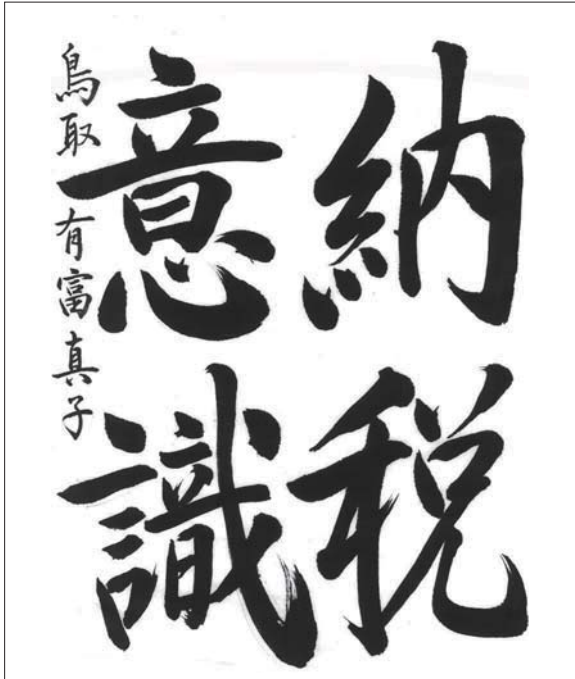 納税
意識
鳥取 有富真子